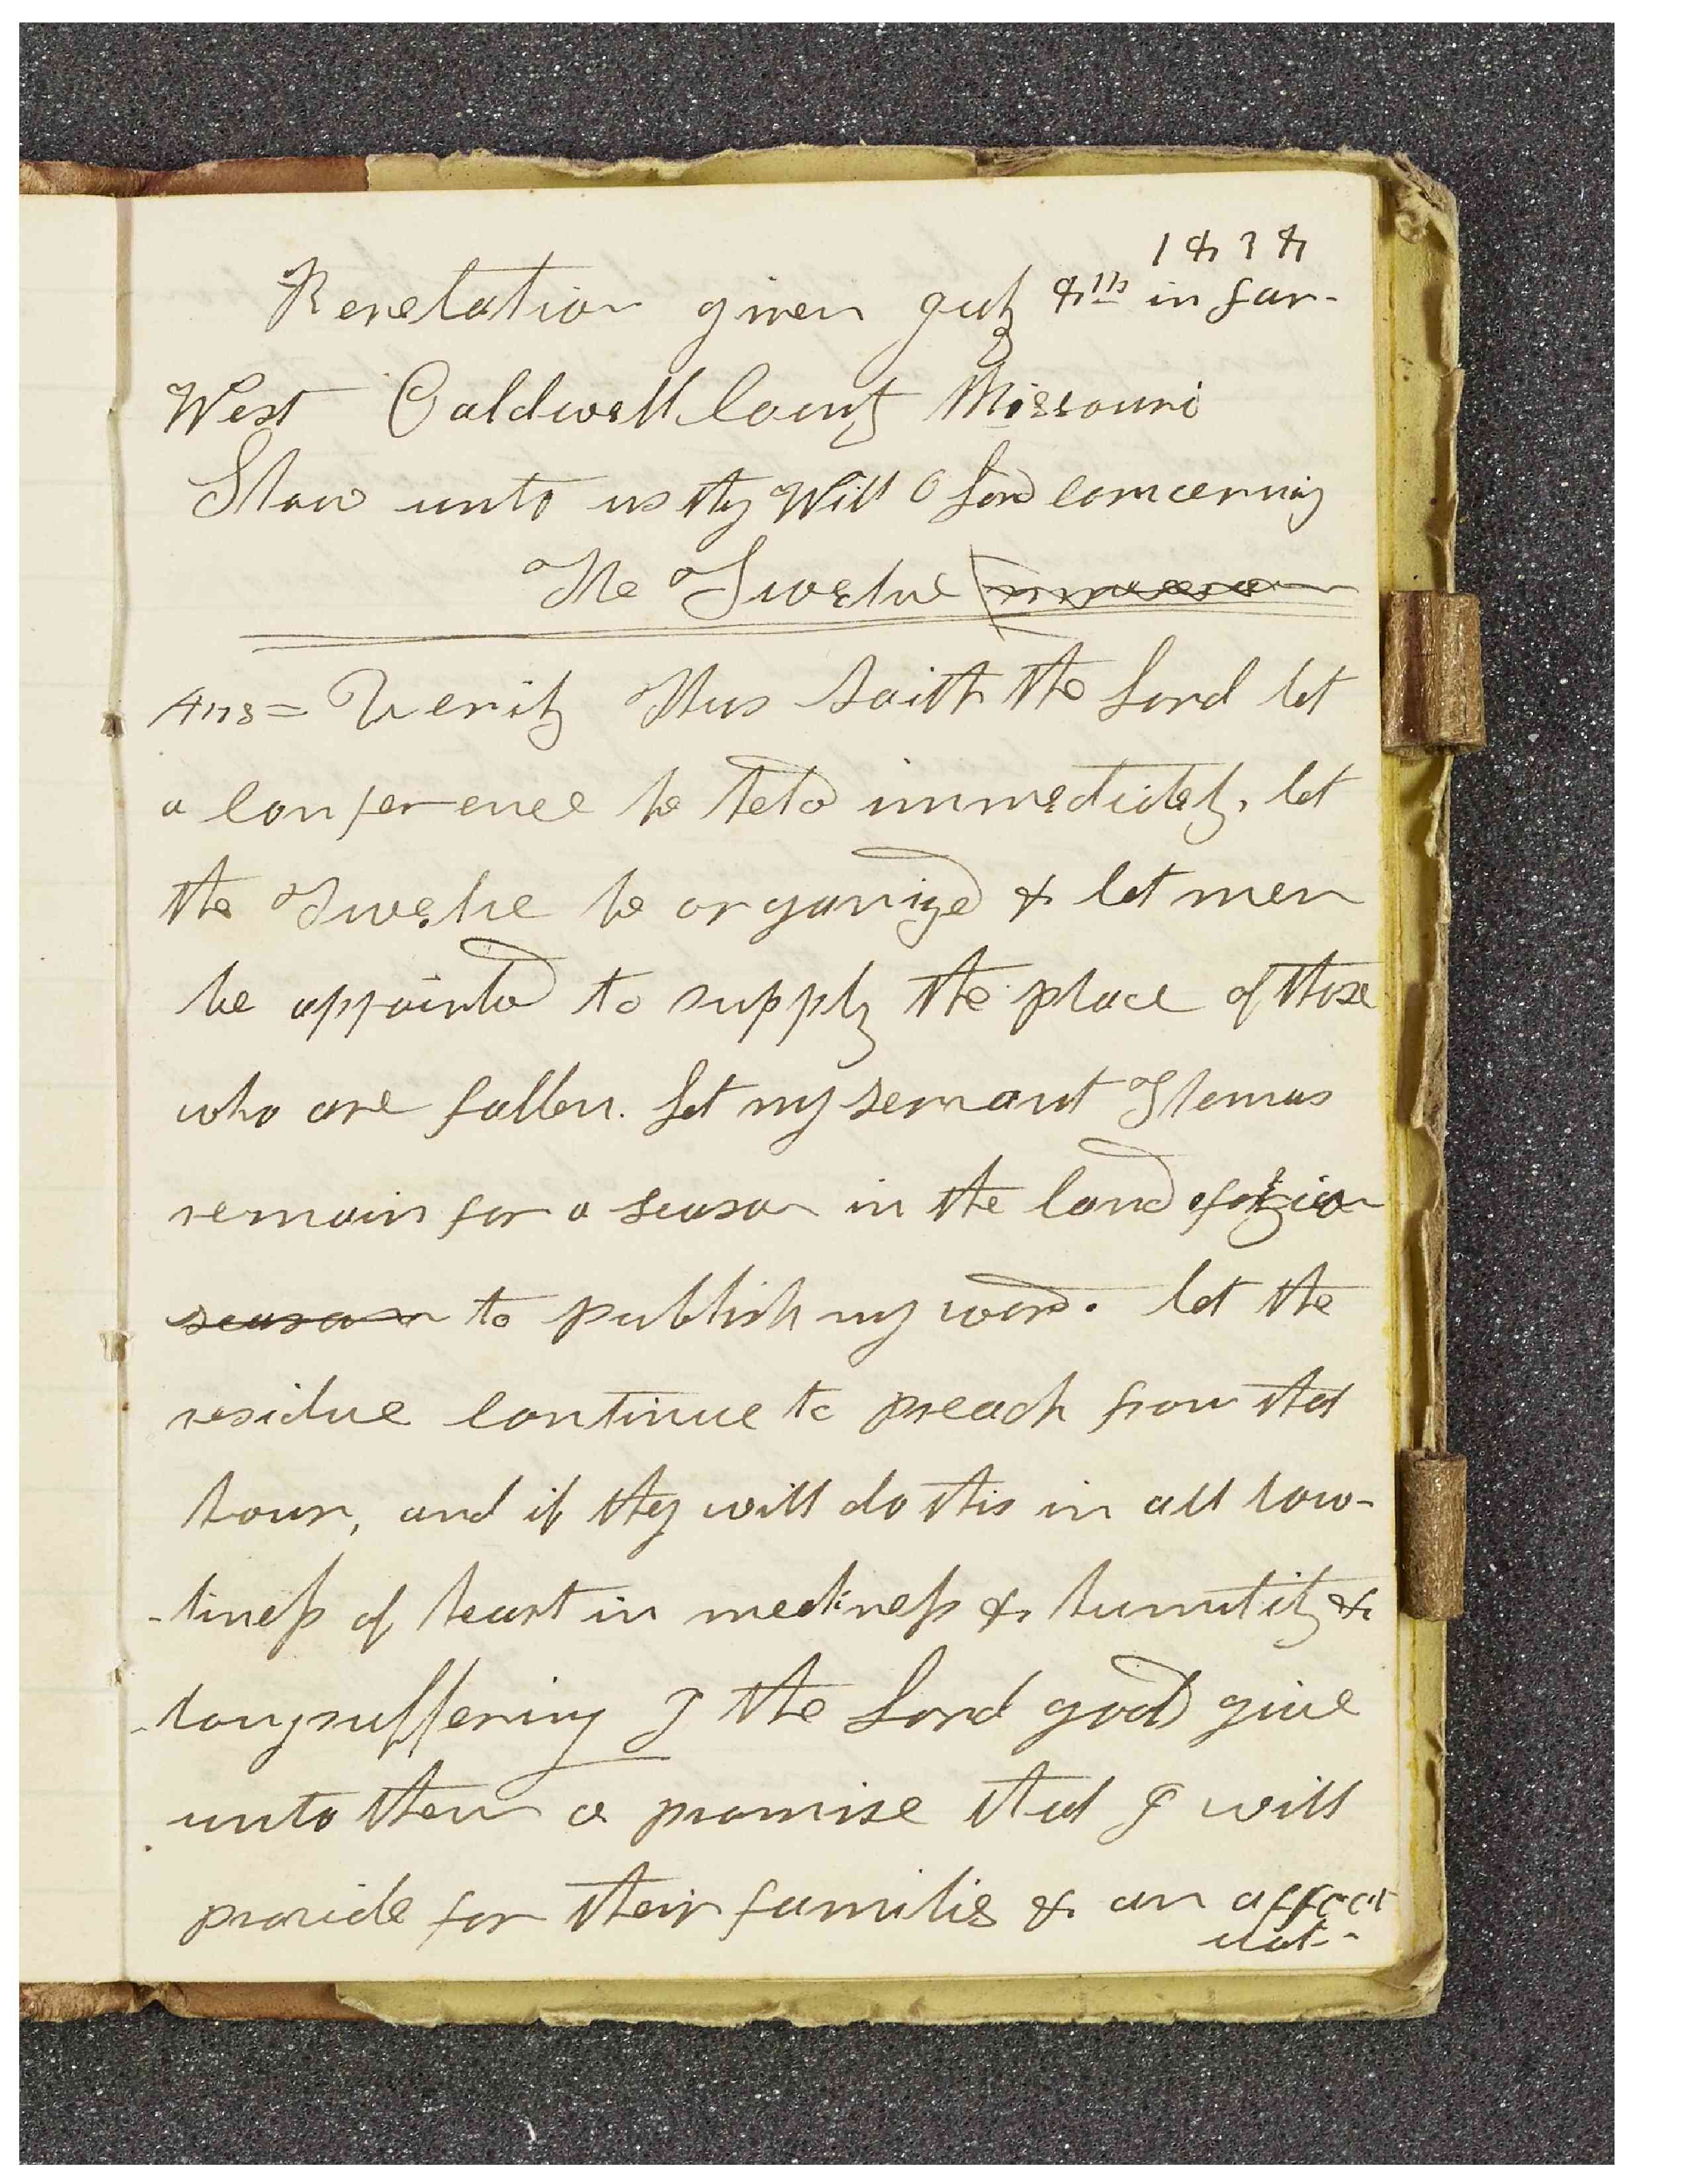 1838
Revelation given July 8th in far-
West Caldwell County Missouri
Show unto us thy Will O Lord concerning
The Twelve
Ans= Verily Thus saith the Lord let
a conference be held immediately, let
the Twelve be organized & let men
be appointed to supply the place of those
who are fallen. Let my servant Thomas
remain for a season in the land of zion
season to publish my word. let the
residue continue to preach from that
hour, and if they will do this in all low-
-liness of heart in meekness & humility &
longsuffering I the Lord god give
unto them a promise that I will
provide for their families & an affect
ual-